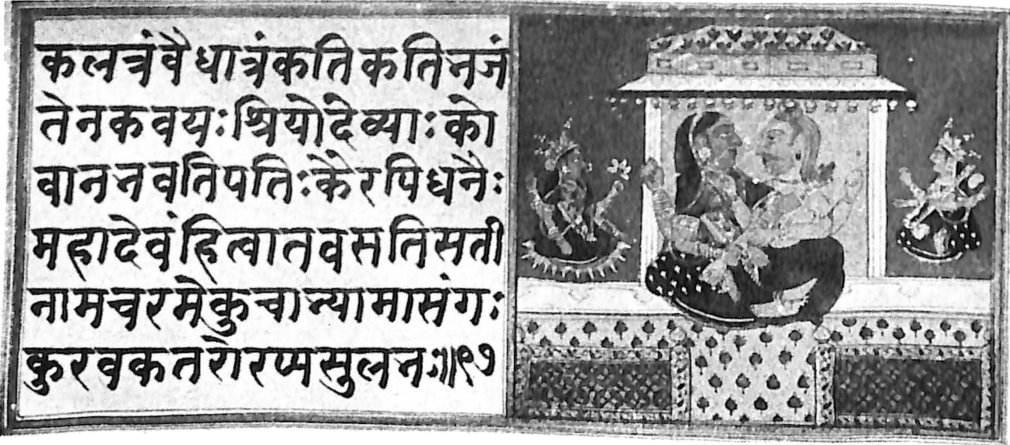 कलत्रंवैधात्रंकतिकतिनजं
तेनकवयःश्रियोदेव्याःको
वाननवतिपतिःकेरपिधनैः
महादेवंहित्वातवसतिसती
नामचरमेकुचान्यामासंगः
कुरवकतरोरप्यसुलनः॥९७